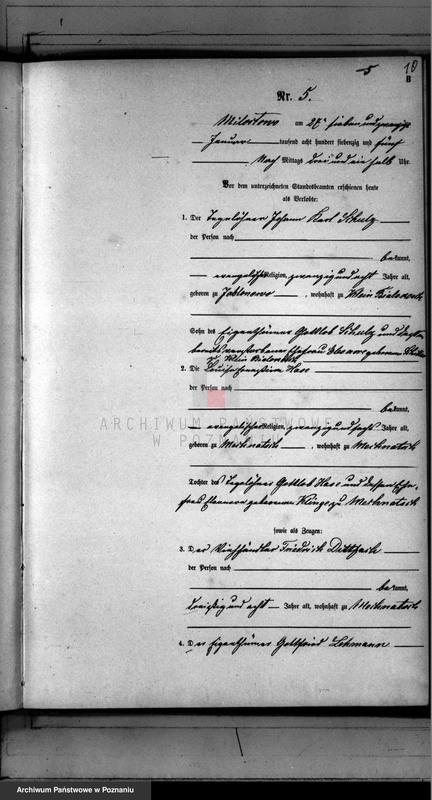 5
10
B
Nr. 5.
Milostowo am 27n sieben und zwanzigsten
Januar tausend acht hundert siebenzig und fünf
Nach Mittags drei und ein halb Uhr.
Vor dem unterzeichneten Standesbeamten erschienen heute
als Verlobte:
1. Der Tagelöhner Johann Karl Schulz
der Person nach
bekannt,
evangelischer Religion, zwanzig und acht Jahre alt,
geboren zu Jablonowo, wohnhaft zu Klein
Sohn des Eigenthümers Gottlob Schulz und dessen
bereits verstorbenen Ehefrau geborenen
zu Klein
2. Die Louise Ernestine Hase
der Person nach
bekannt,
evangelischer Religion, zwanzig und sechs Jahre alt,
geboren zu Mechnatsch, wohnhaft zu Mechnatsch
Tochter des Tagelöhner Gottlob Hase und dessen Ehe-
frau Eleonore geborenen Klinge zu Mechnatsch
sowie als Zeugen:
3. Der Viehhändler Friedrich
der Person nach
bekannt,
dreißig und acht Jahre alt, wohnhaft zu Mechnatsch
4. Der Eigenthümer Gottfried Lehmann
ARCHIWUM PAŃSTWOWE
W POZNANIU
Archiwum Państwowe w Poznaniu